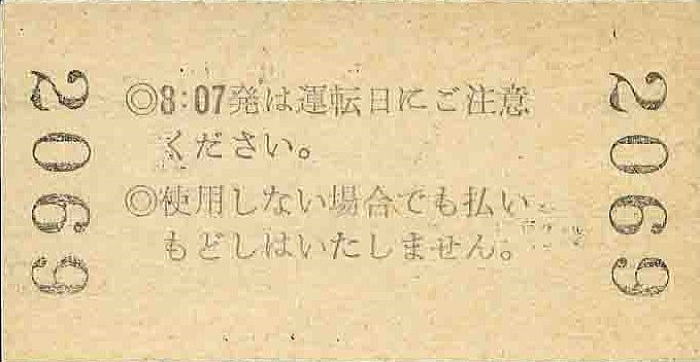 2069
◎8:07発は運転日にご注意
ください。
◎使用しない場合でも払い
もどしはいたしません。
2069